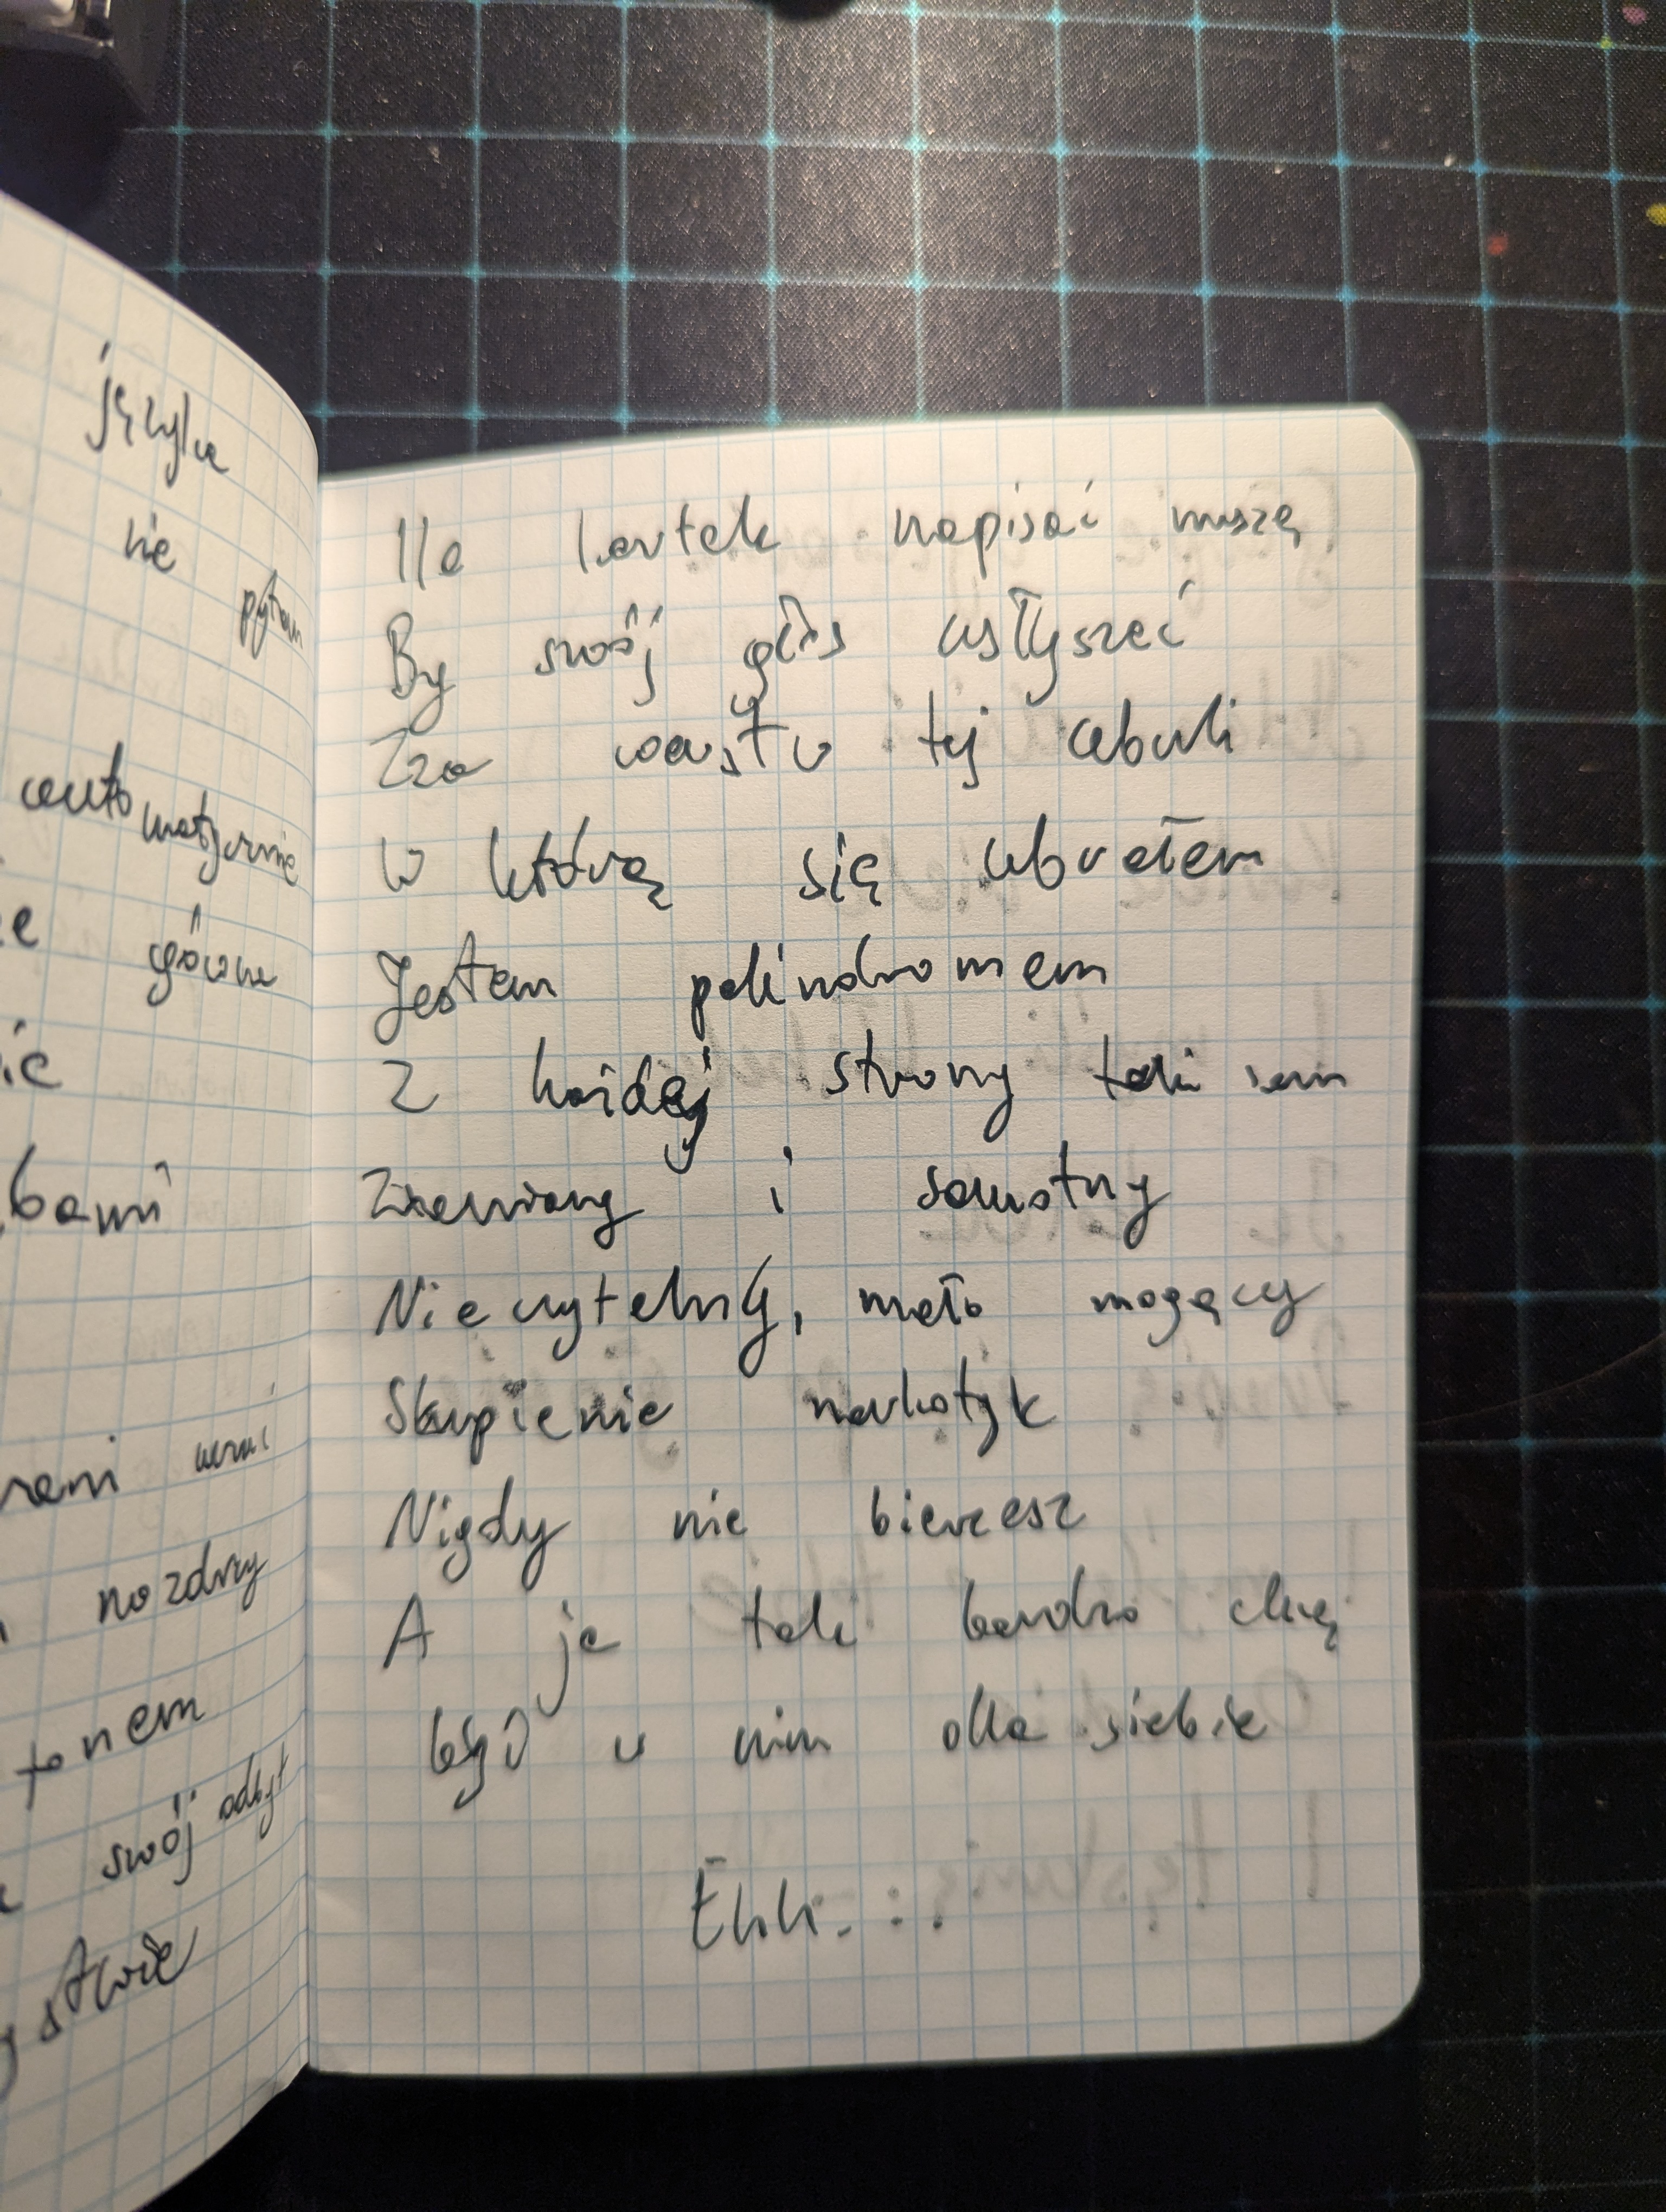 języka
nie pytam
automatycznie
gówna
bami
nozdrzy
tonem
swój odbyt
Ile kartek napisać muszę
By swój głos usłyszeć
Zza warstw tej cebuli
W którą się ubrałem
Jestem palindromem
Z każdej strony taki sam
i samotny
Nieczytelny, mało mogący
Skupienie narkotyk
Nigdy nie bierzesz
A ja tak bardzo chcę
być w nim dla siebie
Ehh..